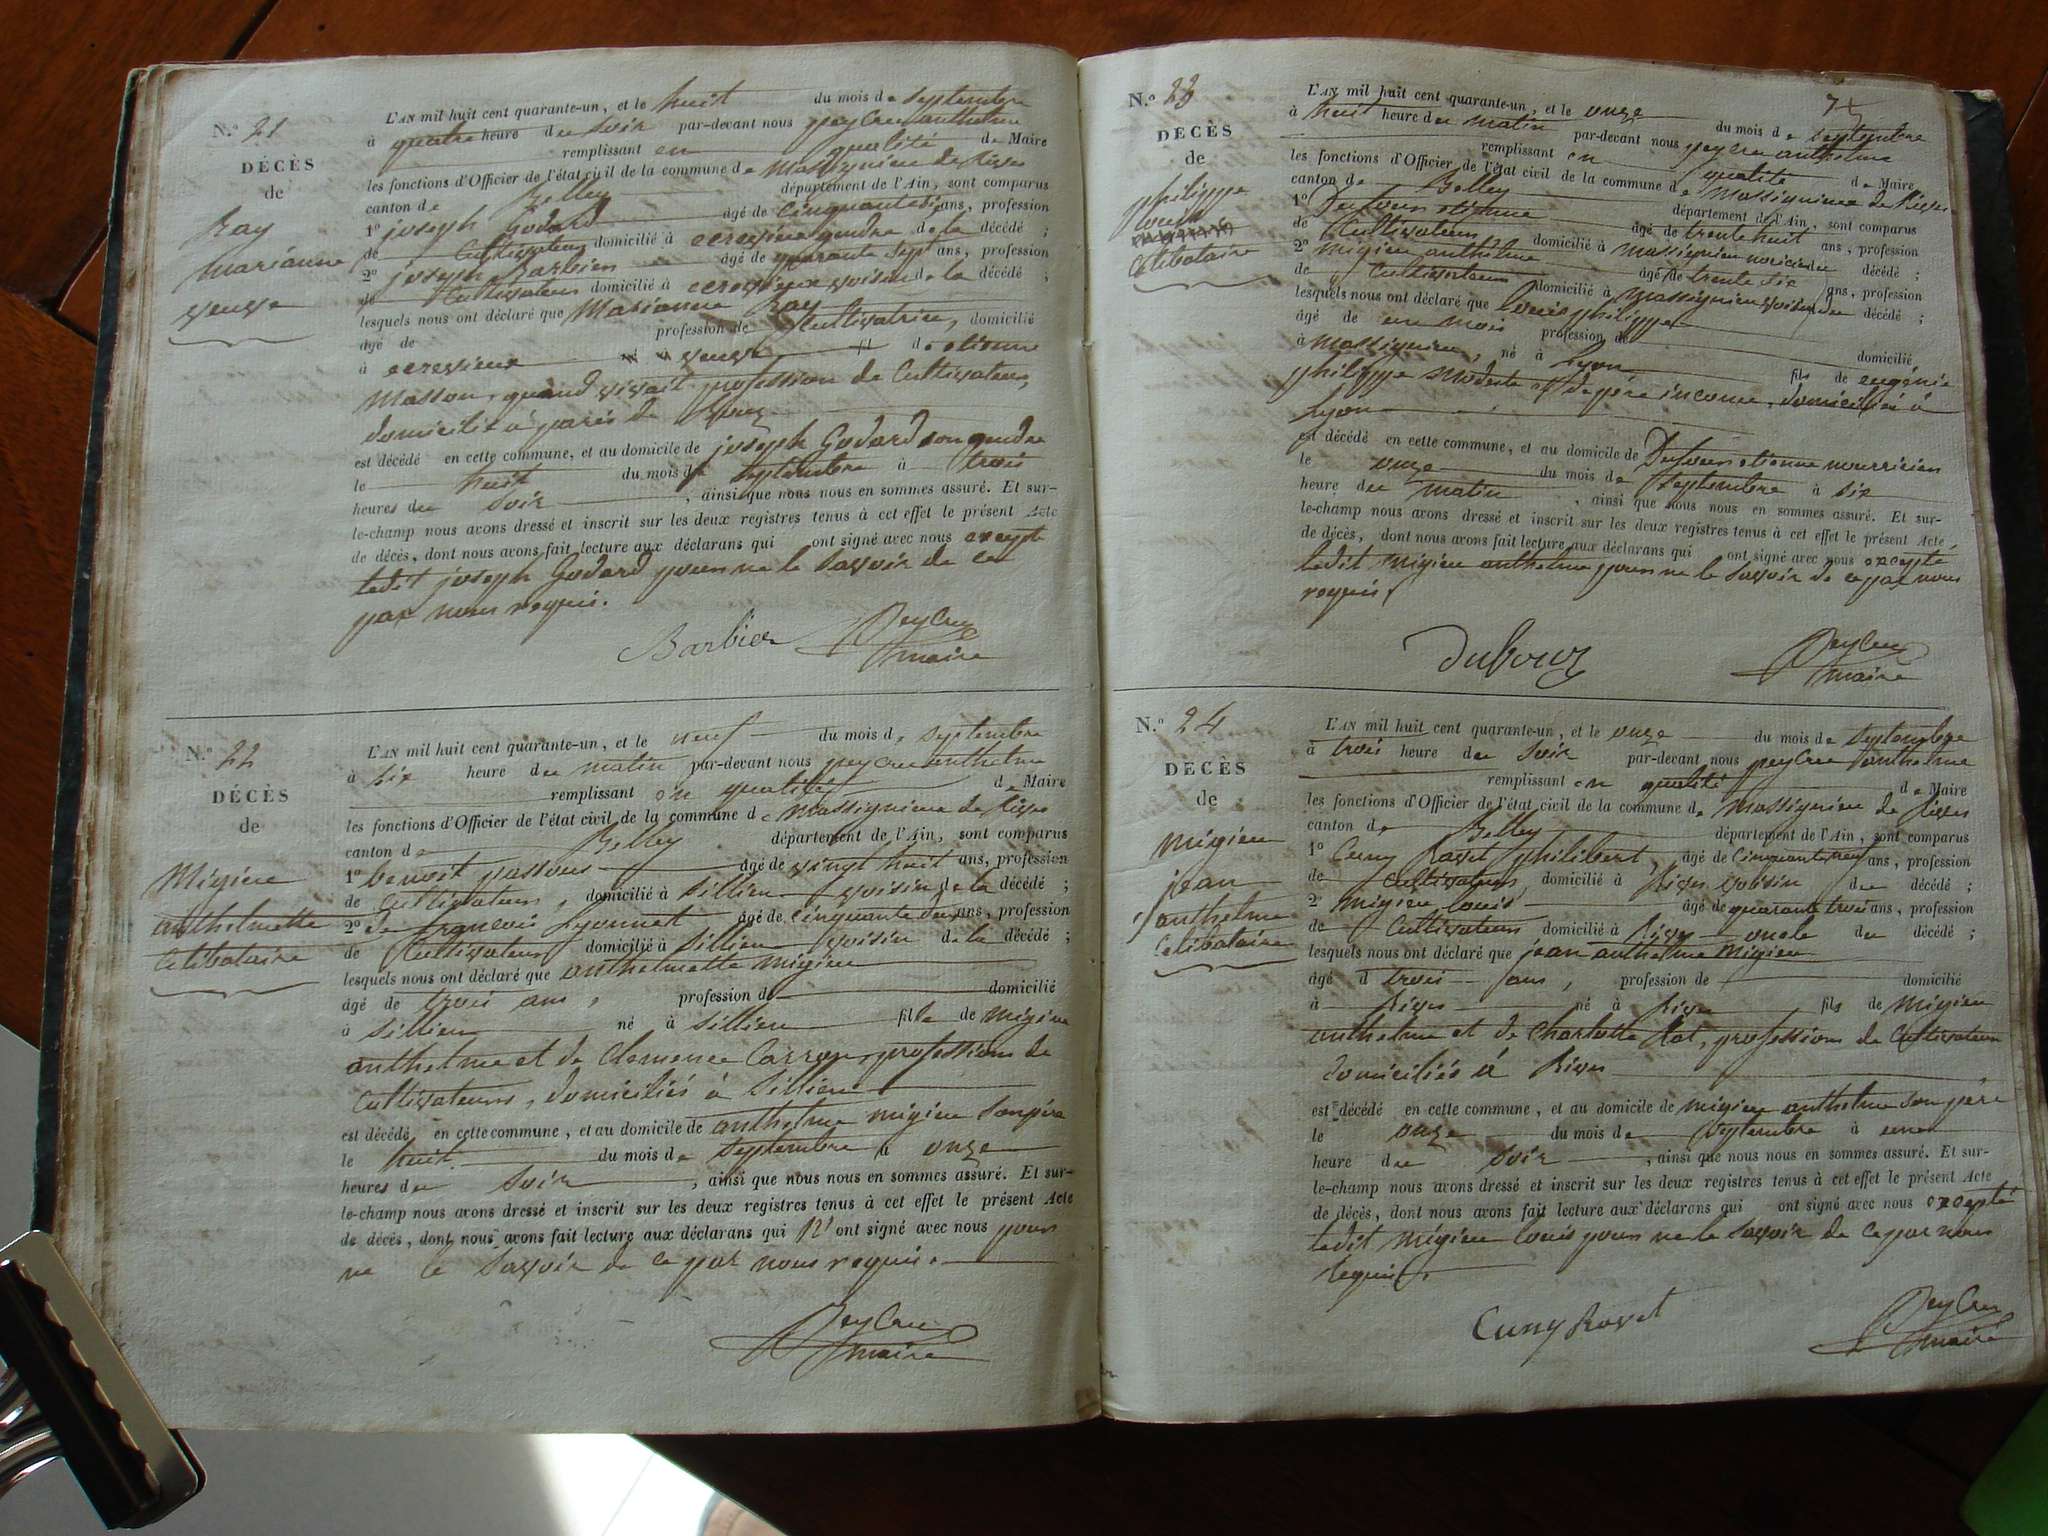 N.º 21
DÉCÈS
de
Ray
marianne
veuve
L'AN mil huit cent quarante-un, et le huit du mois de septembre
à quatre heure du soir par-devant nous peycru anthelme
remplissant en qualité de Maire
les fonctions d'Officier de l'état civil de la commune de massignieu de Rives
canton de Belley département de l'Ain, sont comparus
1º joseph Godard âgé de cinquante ans, profession
de cultivateur domicilié à ecrevieu gendre de la décédé ;
2º joseph Barbier âgé de quarante sept ans, profession
de cultivateur domicilié à ecrevieux voisin de la décédé ;
lesquels nous ont déclaré que Marianne Ray
âgé de profession de cultivatrice, domicilié
à ecrevieux veuve de etienne
Masson, quand vivait profession de cultivateur,
domicilié à parès de
est décédé en cette commune, et au domicile de joseph Godard son gendre
le huit du mois de septembre à trois
heures du soir, ainsi que nous nous en sommes assuré. Et sur-
le-champ nous avons dressé et inscrit sur les deux registres tenus à cet effet le présent Acte
de décès, dont nous avons fait lecture aux déclarans qui ont signé avec nous excepté
ledit joseph Godard pour ne le savoir de ce
par nous requis.
Barbier Peycru
maire
N.º 22
DÉCÈS
de
Migieu
anthelmette
celibataire
L'AN mil huit cent quarante-un, et le neuf du mois de septembre
à six heure du matin par-devant nous peycru anthelme
remplissant en qualité de Maire
les fonctions d'Officier de l'état civil de la commune de massignieu de Rives
canton de Belley département de l'Ain, sont comparus
1º benoit passour âgé de vingt huit ans, profession
de cultivateur, domicilié à sillieu voisin de la décédé ;
2º de francois Lyonnet âgé de cinquante deux ans, profession
de Cultivateur domicilié à sillieu voisin de la décédé ;
lesquels nous ont déclaré que anthelmette migieu
âgé de trois ans, profession de domicilié
à sillieu né à sillieu fille de migieu
anthelme et de Clemence Carron, professions de
cultivateurs, domiciliés à sillieu
est décédé en cette commune, et au domicile de anthelme migieu son père
le huit du mois de septembre à onze
heures du soir, ainsi que nous nous en sommes assuré. Et sur-
le-champ nous avons dressé et inscrit sur les deux registres tenus à cet effet le présent Acte
de décès, dont nous avons fait lecture aux déclarans qui n' ont signé avec nous pour
ne le savoir de ce par nous requis.
Peycru
maire
N.º 23
DÉCÈS
de
philippe
louis
celibataire
L'AN mil huit cent quarante-un, et le onze du mois de septembre
à huit heure du matin par-devant nous peycru anthelme
remplissant en qualité de Maire
les fonctions d'Officier de l'état civil de la commune de massignieu de Rives
canton de Belley département de l'Ain, sont comparus
1º Dufour etienne âgé de trente huit ans, profession
de Cultivateur domicilié à massignieu nourricier du décédé ;
2º migieu anthelme âgé de trente six ans, profession
de cultivateur domicilié à massignieu voisin du décédé ;
lesquels nous ont déclaré que louis philippe
âgé de un mois profession de domicilié
à massignieu, né à Lyon fils de eugénie
philippe modeste et de père inconnu, domicilié à
Lyon
est décédé en cette commune, et au domicile de Dufour etienne nourricier
le onze du mois de septembre à six
heure du matin, ainsi que nous nous en sommes assuré. Et sur-
le-champ nous avons dressé et inscrit sur les deux registres tenus à cet effet le présent Acte
de décès, dont nous avons fait lecture aux déclarans qui ont signé avec nous excepté
ledit migieu anthelme pour ne le savoir de ce par nous
requis.
dufour Peycru
maire
N.º 24
DÉCÈS
de
migieu
jean
anthelme
celibataire
L'AN mil huit cent quarante-un, et le onze du mois de septembre
à trois heure du soir par-devant nous peycru anthelme
remplissant en qualité de Maire
les fonctions d'Officier de l'état civil de la commune de massignieu de Rives
canton de Belley département de l'Ain, sont comparus
1º Cuny Ravet philibert, âgé de cinquante neuf ans, profession
de cultivateur, domicilié à Rives voisin du décédé ;
2º migieu louis âgé de quarante trois ans, profession
de Cultivateur domicilié à Rives oncle du décédé ;
lesquels nous ont déclaré que jean anthelme migieu
âgé d trois ans, profession de domicilié
à Rives né à Rives fils de migieu
anthelme et de Charlotte Rat, profession de Cultivateur
domiciliés à Rives
est décédé en cette commune, et au domicile de migieu anthelme son père
le onze du mois de septembre à une
heure du soir, ainsi que nous nous en sommes assuré. Et sur-
le-champ nous avons dressé et inscrit sur les deux registres tenus à cet effet le présent Acte
de décès, dont nous avons fait lecture aux déclarans qui ont signé avec nous excepté
ledit migieu louis pour ne le savoir de ce par nous
requis.
Cuny Ravet Peycru
maire